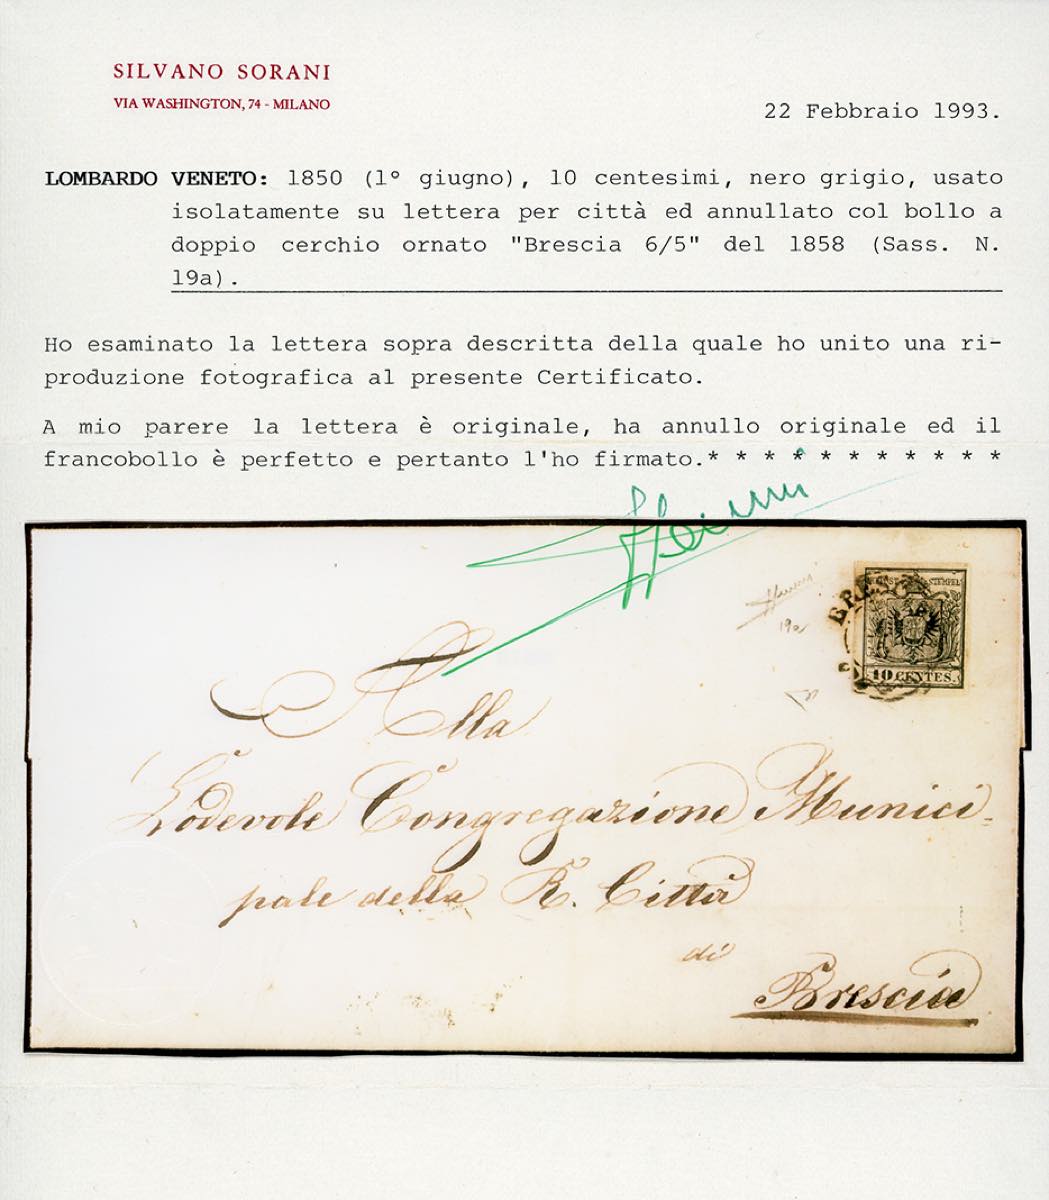 SILVANO SORANI
VIA WASHINGTON, 74 - MILANO
22 Febbraio 1993.
LOMBARDO VENETO: 1850 (1° giugno), 10 centesimi, nero grigio, usato
isolatamente su lettera per città ed annullato col bollo a
doppio cerchio ornato "Brescia 6/5" del 1858 (Sass. N.
19a).
Ho esaminato la lettera sopra descritta della quale ho unito una ri-
produzione fotografica al presente Certificato.
A mio parere la lettera è originale, ha annullo originale ed il
francobollo è perfetto e pertanto l'ho firmato.* * * * * * * * * * *
19a
STEMPEL
BRES
10 CENTES.
Alla
Lodevole Congregazione Munici-
pale della R. Città
di
Brescia